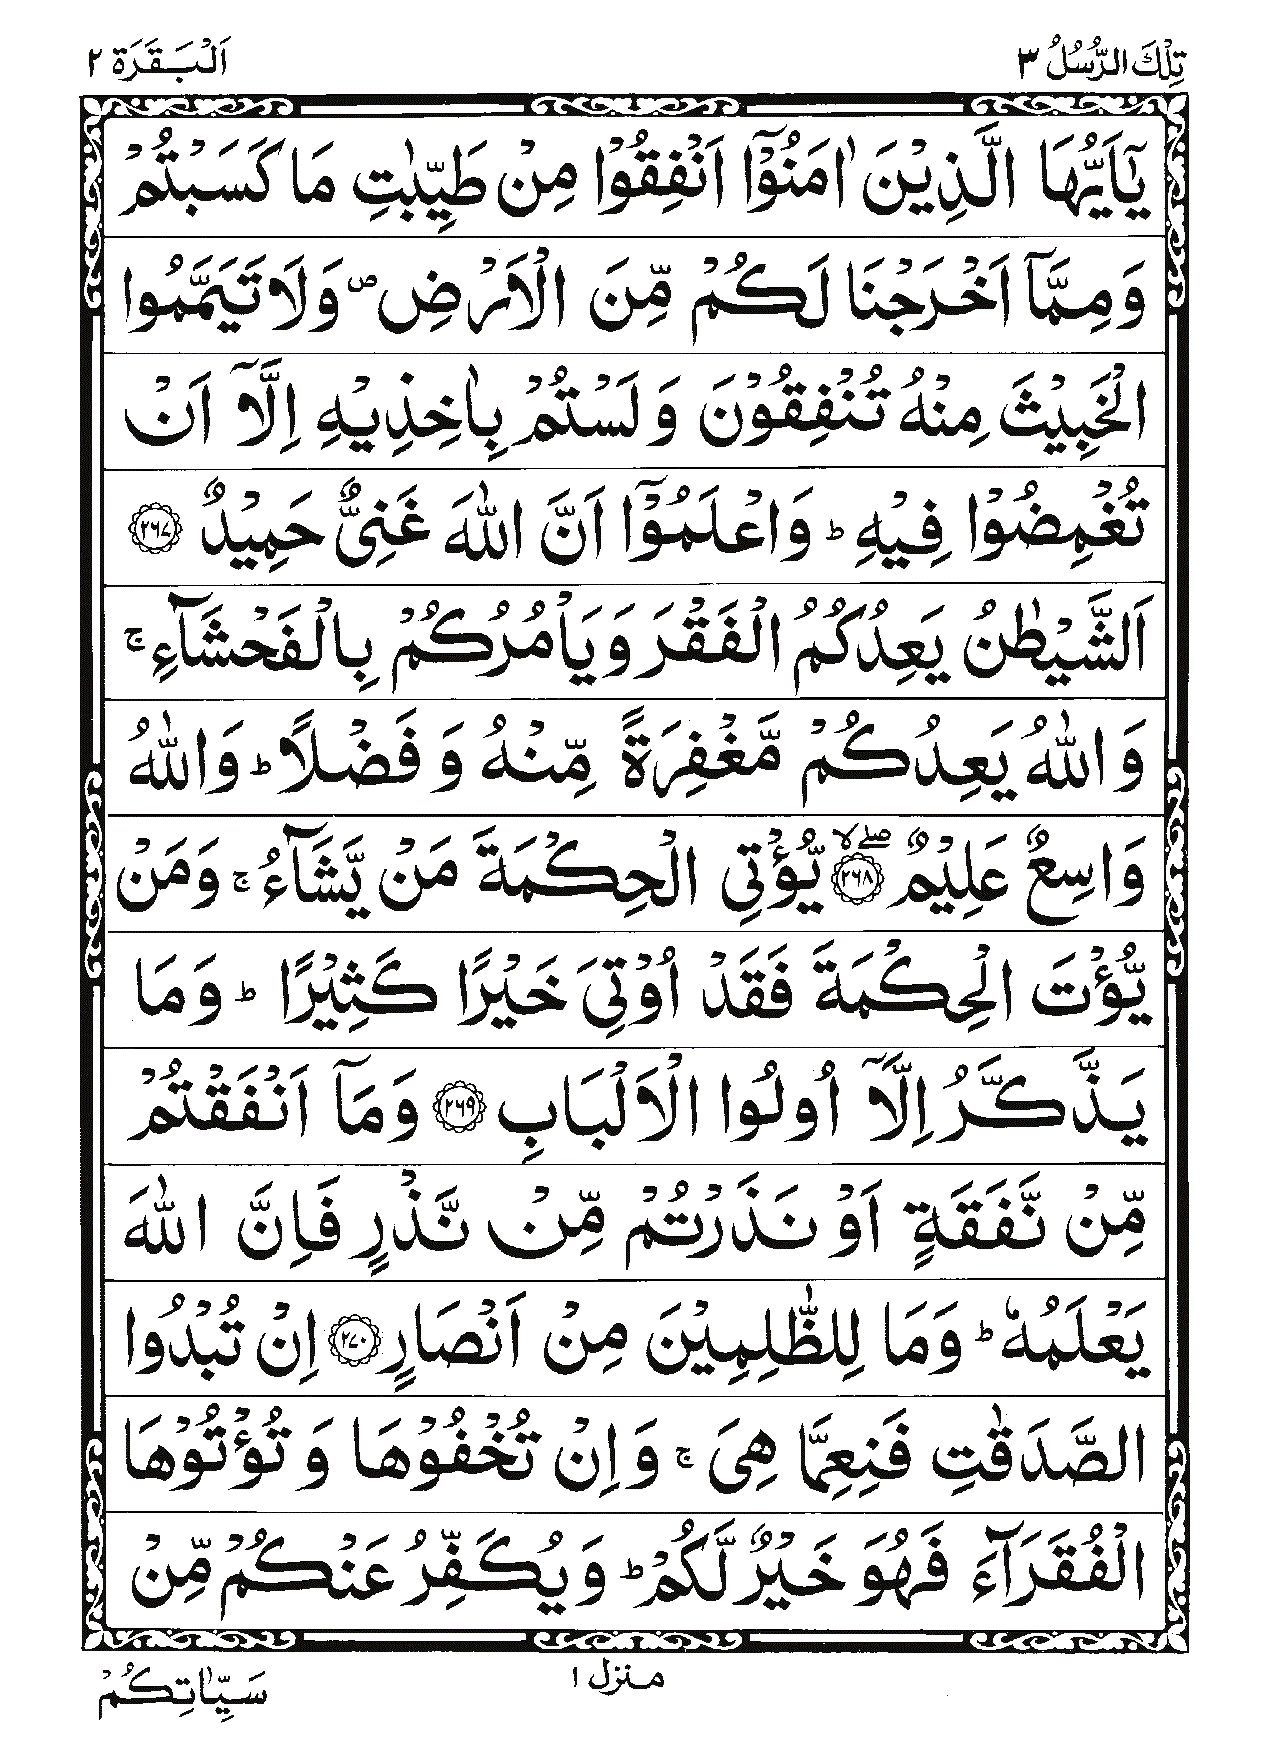 تِلْكَ الرُّسُلُ ٣
اَلْبَقَرَة ٢
يٰٓاَيُّهَا الَّذِيْنَ اٰمَنُوْٓا اَنْفِقُوْا مِنْ طَيِّبٰتِ مَا كَسَبْتُمْ
وَمِمَّآ اَخْرَجْنَا لَكُمْ مِّنَ الْاَرْضِ ۪ وَلَا تَيَمَّمُوا
الْخَبِيْثَ مِنْهُ تُنْفِقُوْنَ وَلَسْتُمْ بِاٰخِذِيْهِ اِلَّآ اَنْ
تُغْمِضُوْا فِيْهِ ؕ وَاعْلَمُوْٓا اَنَّ اللّٰهَ غَنِىٌّ حَمِيْدٌ ﴿٢٦٧﴾
اَلشَّيْطٰنُ يَعِدُكُمُ الْفَقْرَ وَيَاْمُرُكُمْ بِالْفَحْشَآءِ ۚ
وَاللّٰهُ يَعِدُكُمْ مَّغْفِرَةً مِّنْهُ وَفَضْلًا ؕ وَاللّٰهُ
وَاسِعٌ عَلِيْمٌ ﴿٢٦٨﴾ ۖۙ يُّؤْتِى الْحِكْمَةَ مَنْ يَّشَآءُ ۚ وَمَنْ
يُّؤْتَ الْحِكْمَةَ فَقَدْ اُوْتِىَ خَيْرًا كَثِيْرًا ؕ وَمَا
يَذَّكَّرُ اِلَّآ اُولُوا الْاَلْبَابِ ﴿٢٦٩﴾ وَمَآ اَنْفَقْتُمْ
مِّنْ نَّفَقَةٍ اَوْ نَذَرْتُمْ مِّنْ نَّذْرٍ فَاِنَّ اللّٰهَ
يَعْلَمُهٗ ؕ وَمَا لِلظّٰلِمِيْنَ مِنْ اَنْصَارٍ ﴿٢٧٠﴾ اِنْ تُبْدُوا
الصَّدَقٰتِ فَنِعِمَّا هِىَ ۚ وَاِنْ تُخْفُوْهَا وَتُؤْتُوْهَا
الْفُقَرَآءَ فَهُوَ خَيْرٌ لَّكُمْ ؕ وَيُكَفِّرُ عَنْكُمْ مِّنْ
منزل ١
سَيِّاٰتِكُمْ